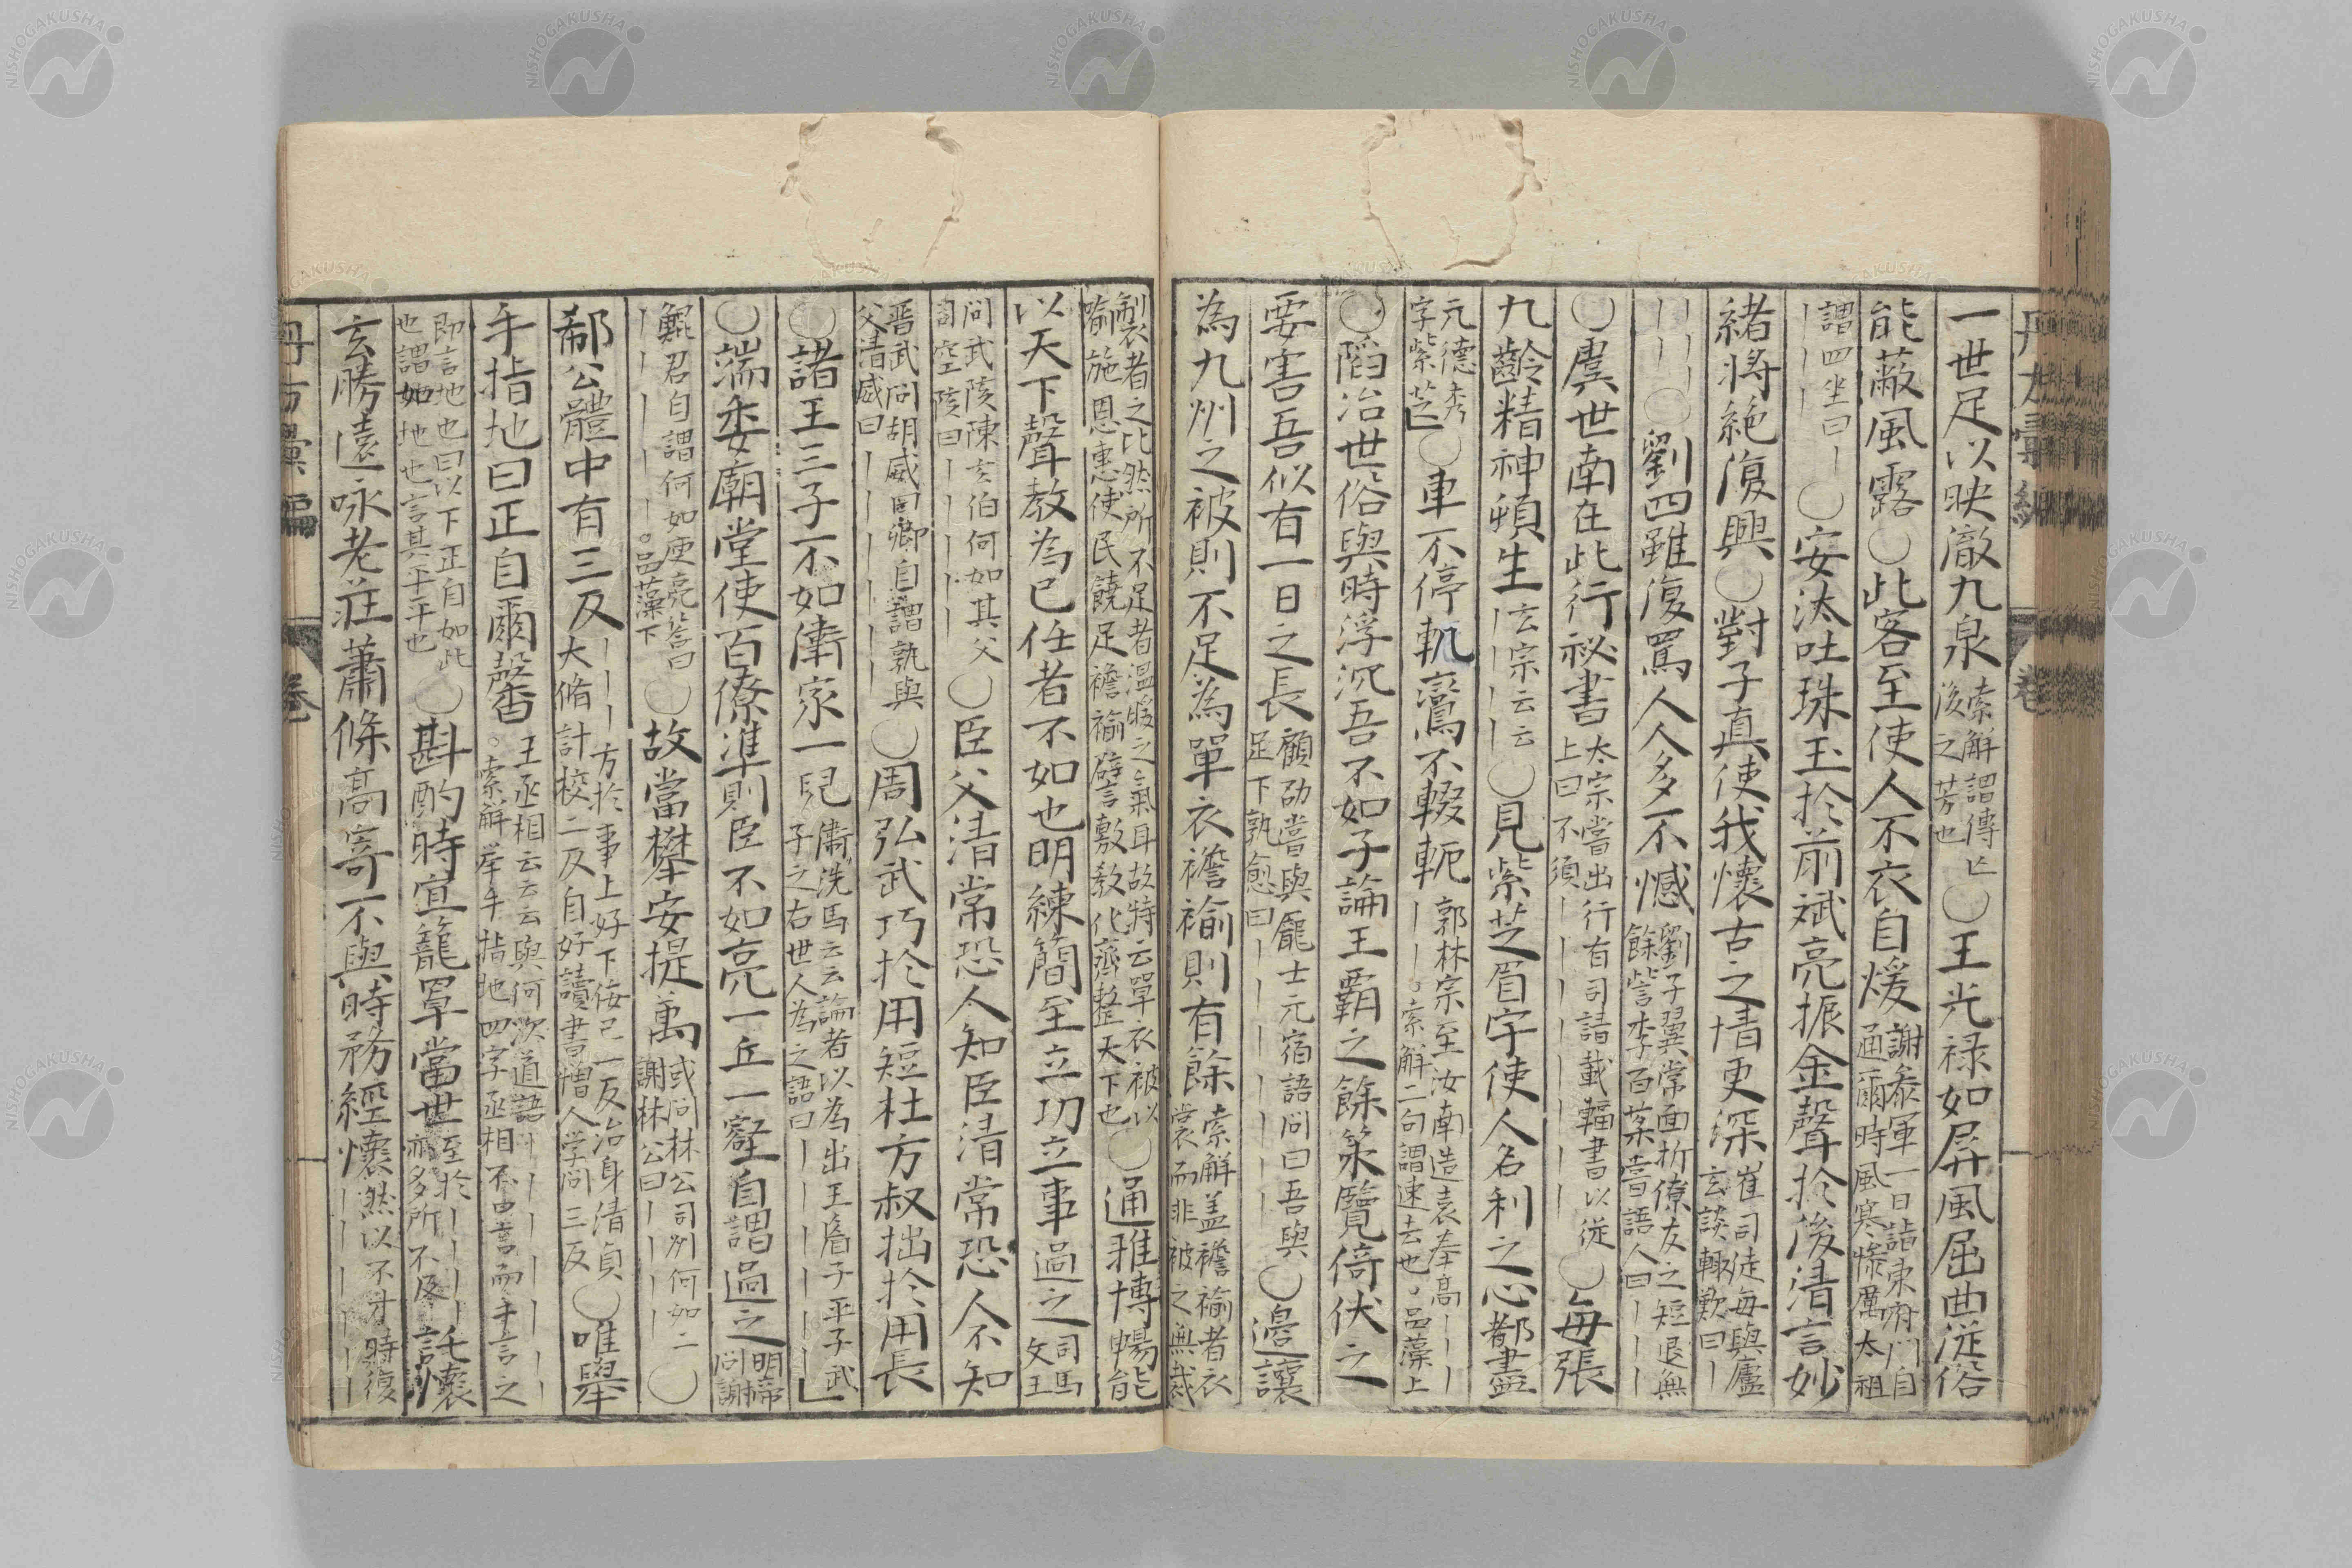 一世足以映澈九泉索解謂傳亡後之芳也○王光禄如屏風屈曲従俗
能蔽風露○此客至使人不衣自煖謝參軍一日詣東府門自通爾時風寒惨厲太祖
謂四坐曰ーーー○安汰吐珠玉於前斌亮振金聲於後清言妙
緒将絶復興○對子真使我懷古之情更深崔司徒毎與盧玄談輙歎曰ー
ーーーーー○劉四雖復罵人人多不憾劉子翼常面折僚友之短退無餘訾李百薬嘗語人曰ーーー
○虞世南在此行祕書太宗嘗出行有司請載輻書以従上曰不須ーーーーー○毎張
九齡精神頓生玄宗云云ーーーー○見紫芝眉宇使人名利之心都盡
元德秀字紫芝○車不停軌鸞不輟軛郭林宗至汝南造袁奉高ーーーーー。索解二句謂速去也。品藻上
○䧟冶世俗與時浮沉吾不如子論王覇之餘策覽倚伏之
要害吾似有一日之長顧劭嘗與龐士元宿語问曰吾與足下孰愈曰ーーーーー○邉讓
為九州之被則不足為單衣襜褕則有餘索解盖襜褕者衣裳而非被之無裁
製者之比然所不足者温煖之氣耳故特云單衣被以喻施恩惠使民饒足襜褕譬敷教化齊整天下也○通雅博暢能
以天下聲教為已任者不如也明練簡至立功立事過之司馬文王
问武陔陳玄伯何如其父司空陔曰ーーーーー○臣父清常恐人知臣清常恐人不知
晋武问胡威曰卿自謂孰與父清威曰ーーーーー○周弘武巧於用短杜方叔拙於用長
○諸王三子不如衛家一兒衛洗馬云云論者以為出王眉子平子武子之右世人為之語曰ーーーーー
○端委廟堂使百僚準則臣不如亮一丘一壑自謂過之明帝问謝
鯤君自謂何如庾亮答曰ーーーーー。品藻下○故當攀安提萬或问林公司州何如二謝林公曰ーーーー○
郗公體中有三反ーーーー方於事上好下佞己一反治身清貞大脩計校二反自好讀書憎人学问三反○唯舉
手指地曰正自爾馨王丞相云云云與何次道語ーーーーー。索解举手指地四字丞相不由言而手言之
即言地也曰以下正自如此也謂如地也言其平平也○斟酌時宜籠罩當世至於ーーーー亦多所不及託懷
玄勝遠咏老莊蕭條高寄不與時務經懷然以不才時復ーーーーー
丹方彙編
卷